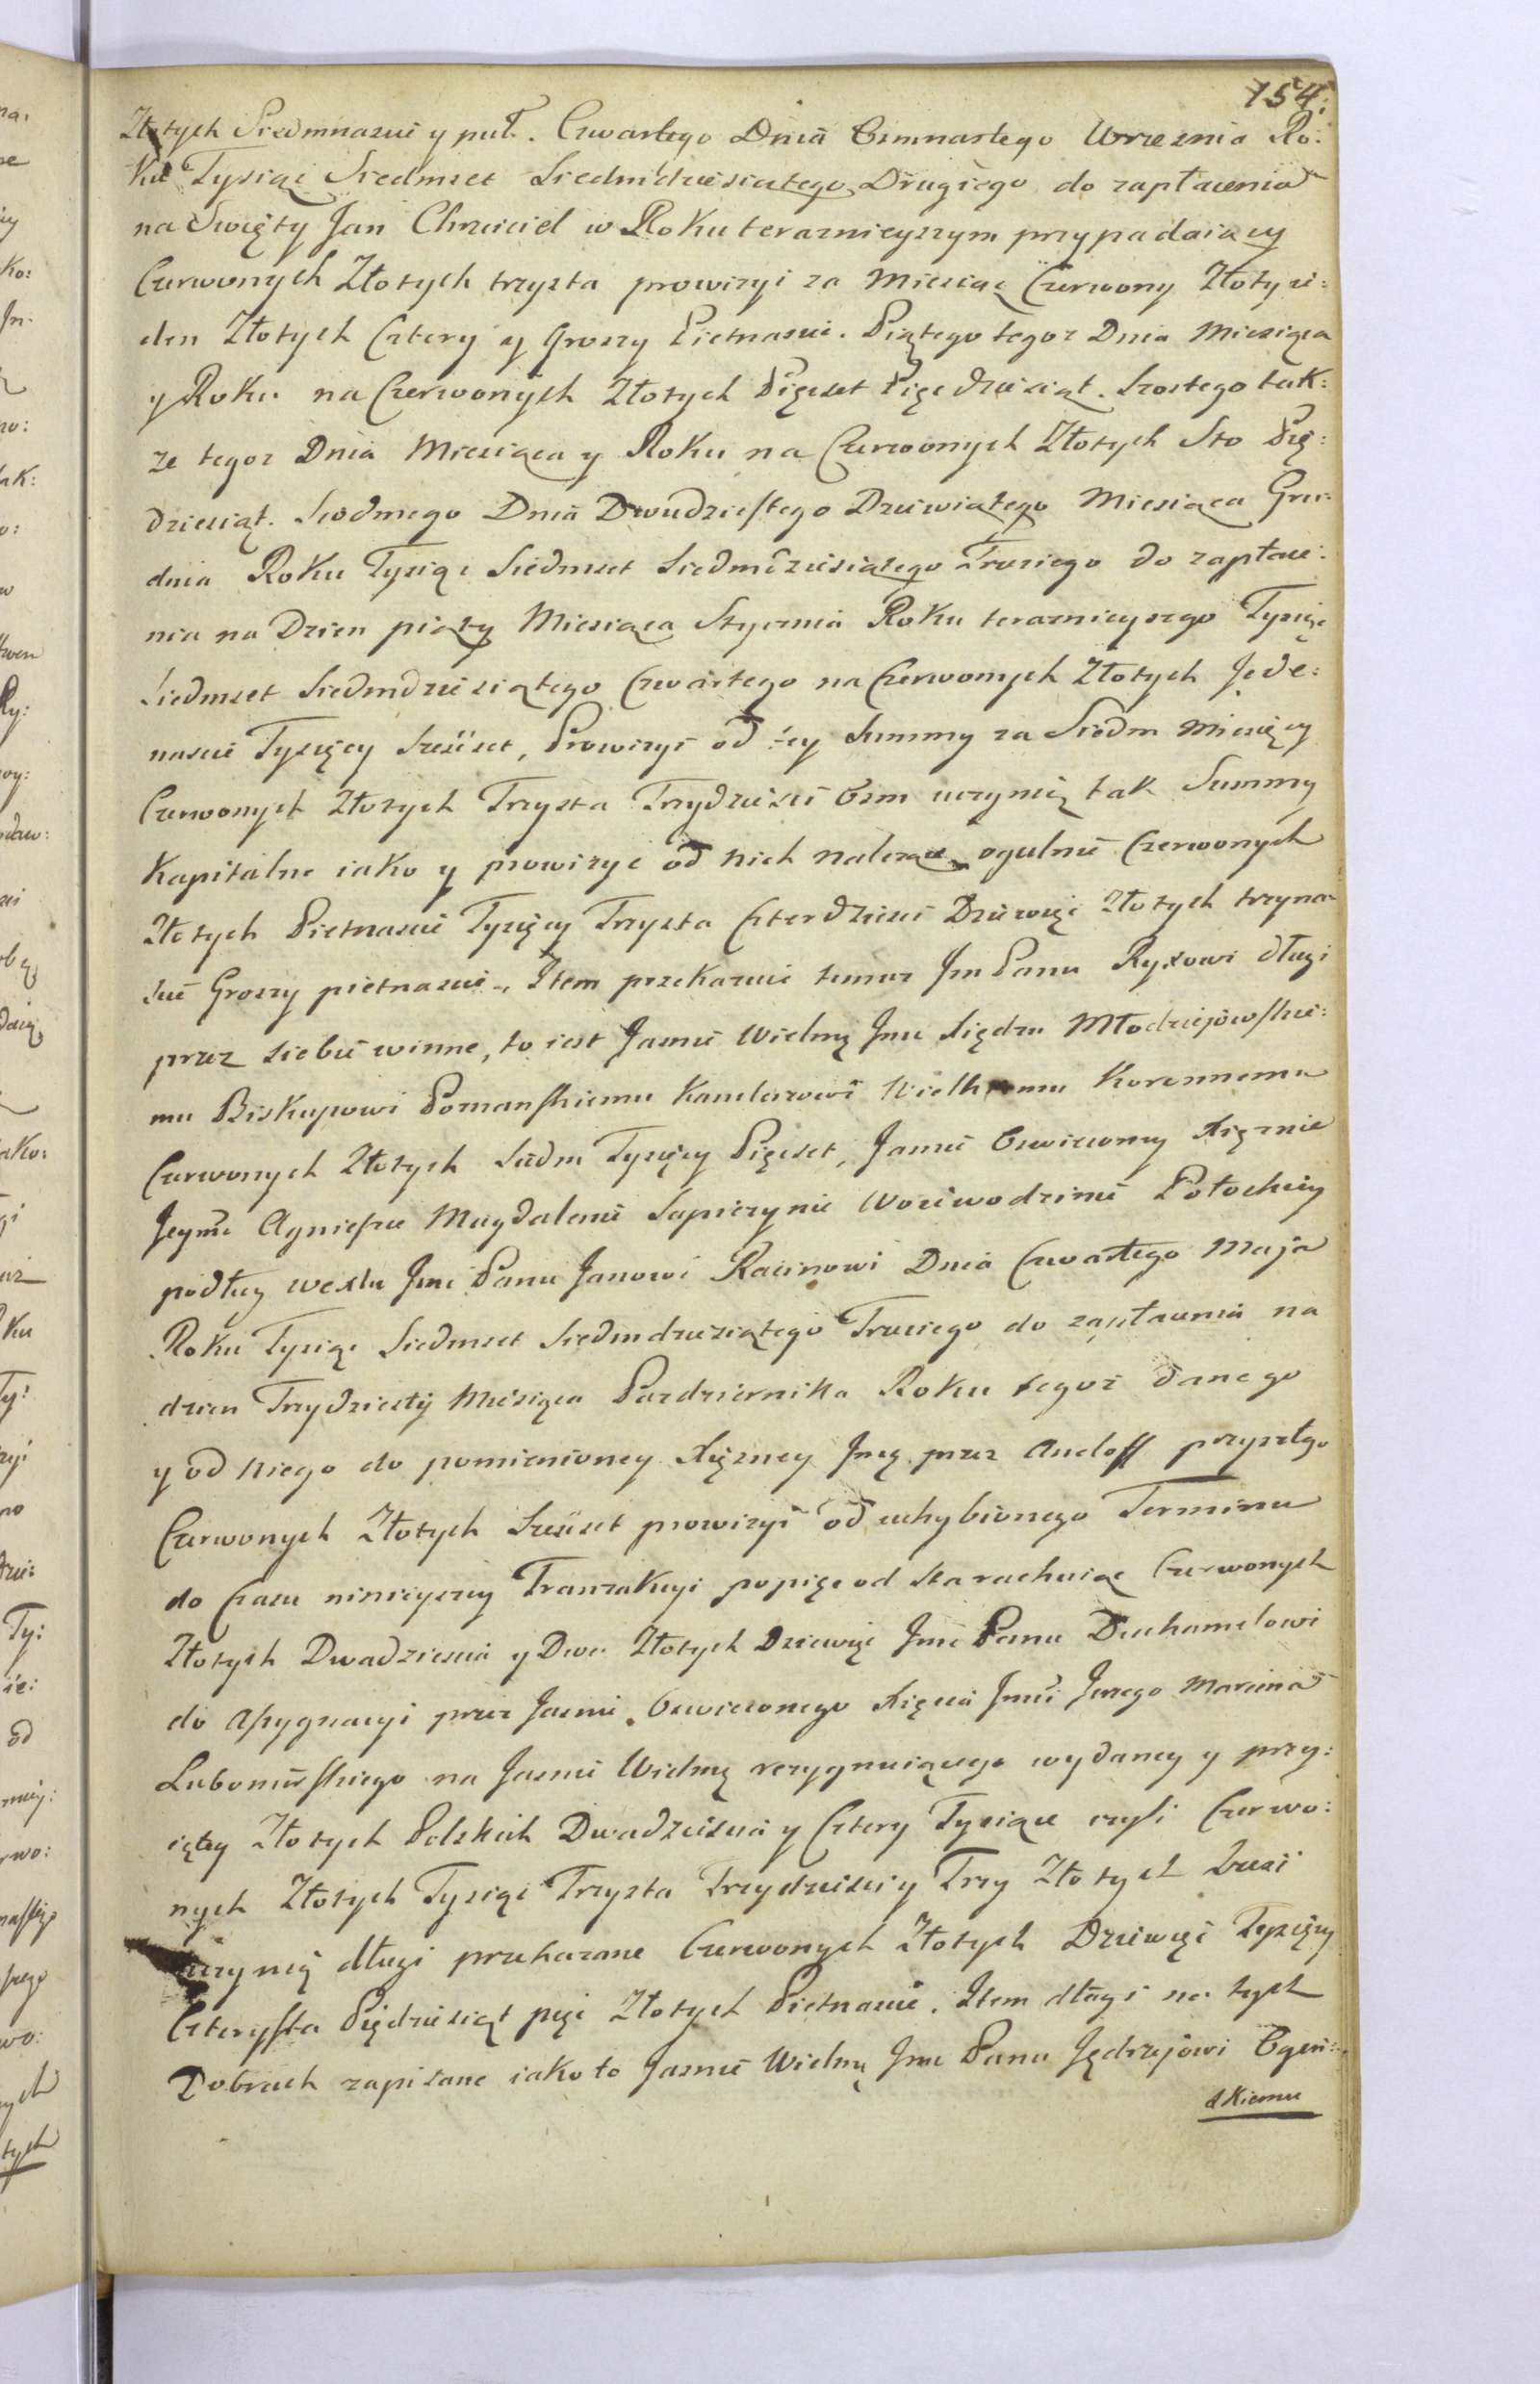 154.
Złotych Siedmnascie y puł. Czwartego Dnia Osmnastego Wrzesnia Ro:
ku Tysiąc Siedmset Siedmdziesiątego Drugiego do zapłacenia
na Swięty Jan Chrzciciel w Roku teraznieyszym przypadaiący
Czerwonych Złotych trzysta prowizyi za Miesiąc Czerwony Złoty ie:
den Złotych Cztery y Groszy Pietnascie. Piątego tegoz Dnia Miesiąca
y Roku na Czerwonych Złotych Pięcset Pięcdziesiąt. Szostego tak:
ze tegoz Dnia Miesiąca y Roku na Czerwonych Złotych Sto Pię:
dziesiąt. Siodmego Dnia Dwudziestego Dziewiątego Miesiąca Gru:
dnia Roku Tysiąc Siedmset Siedmdziesiątego Trzeciego do zapłace:
nia na Dzien piąty Miesiąca Stycznia Roku teraznieyszego Tysiąc
Siedmset Siedmdziesiątego Czwartego na Czerwonych Złotych Jede:
nascie Tysięcy Szescset, Prowizyi od tey Summy za Siedm Miesięcy
Czerwonych Złotych Trzysta Trzydziesci Osm uczynią tak Summy
Kapitalne iako y prowizye od nich nalezące ogulnie Czerwonych
Złotych Pietnascie Tysięcy Trzysta Czterdziesci Dziewięc Złotych trzyna
scie Groszy pietnascie. Item przekazuie temuz Jm Panu Ryxowi długi
przez siebie winne, to iest Jasnie Wielmę Jmc Xiędzu Młodziejowskie:
mu Biskupowi Poznanskiemu Kanclerzowi Wielkiemu Koronnemu
Czerwonych Złotych Siedm Tysięcy Pięcset, Jasnie Oswieconey Xięznie
Jeymci Agnieszce Magdalenie Sapiezynie Woiewodzinie Połockiey
podług wexlu Jmc Panu Janowi Racinowi Dnia Czwartego Maja
Roku Tysiąc Siedmset Siedmdziesiątego Trzeciego do zapłacenia na
dzien Trzydziesty Miesiąca Pazdziernika Roku tegoz danego
y od niego do pomienioney Xięzney Jmc przez Andoss przyszłego
Czerwonych Złotych Szescset prowizyi od uchybionego Terminu
do Czasu ninieyszey Tranzakcyi po pięc od sta rachuiąc Czerwonych
Złotych Dwadziescia y Dwa Złotych Dziewięc Jmc Panu Duchamelowi
do Assygnacyi przez Jasnie Oswieconego Xięcia Jmci Jerzego Marcina
Lubomirskiego na Jasnie Wielmę rezygnuiącego wydaney y przy:
iętey Złotych Polskich Dwadziescia y Cztery Tysiące czyli Czerwo:
nych Złotych Tysiąc Trzysta Trzydziesci y Trzy Złotych Szesc
uczynią długi przekazane Czerwonych Złotych Dziewięc Tysięcy
Czterysta Pięcdziesiąt pięc Złotych Pietnascie. Item długi na tych
Dobrach zapisane iako to Jasnie Wielmę Jmc Panu Jędrzejowi Ogin:
skiemu